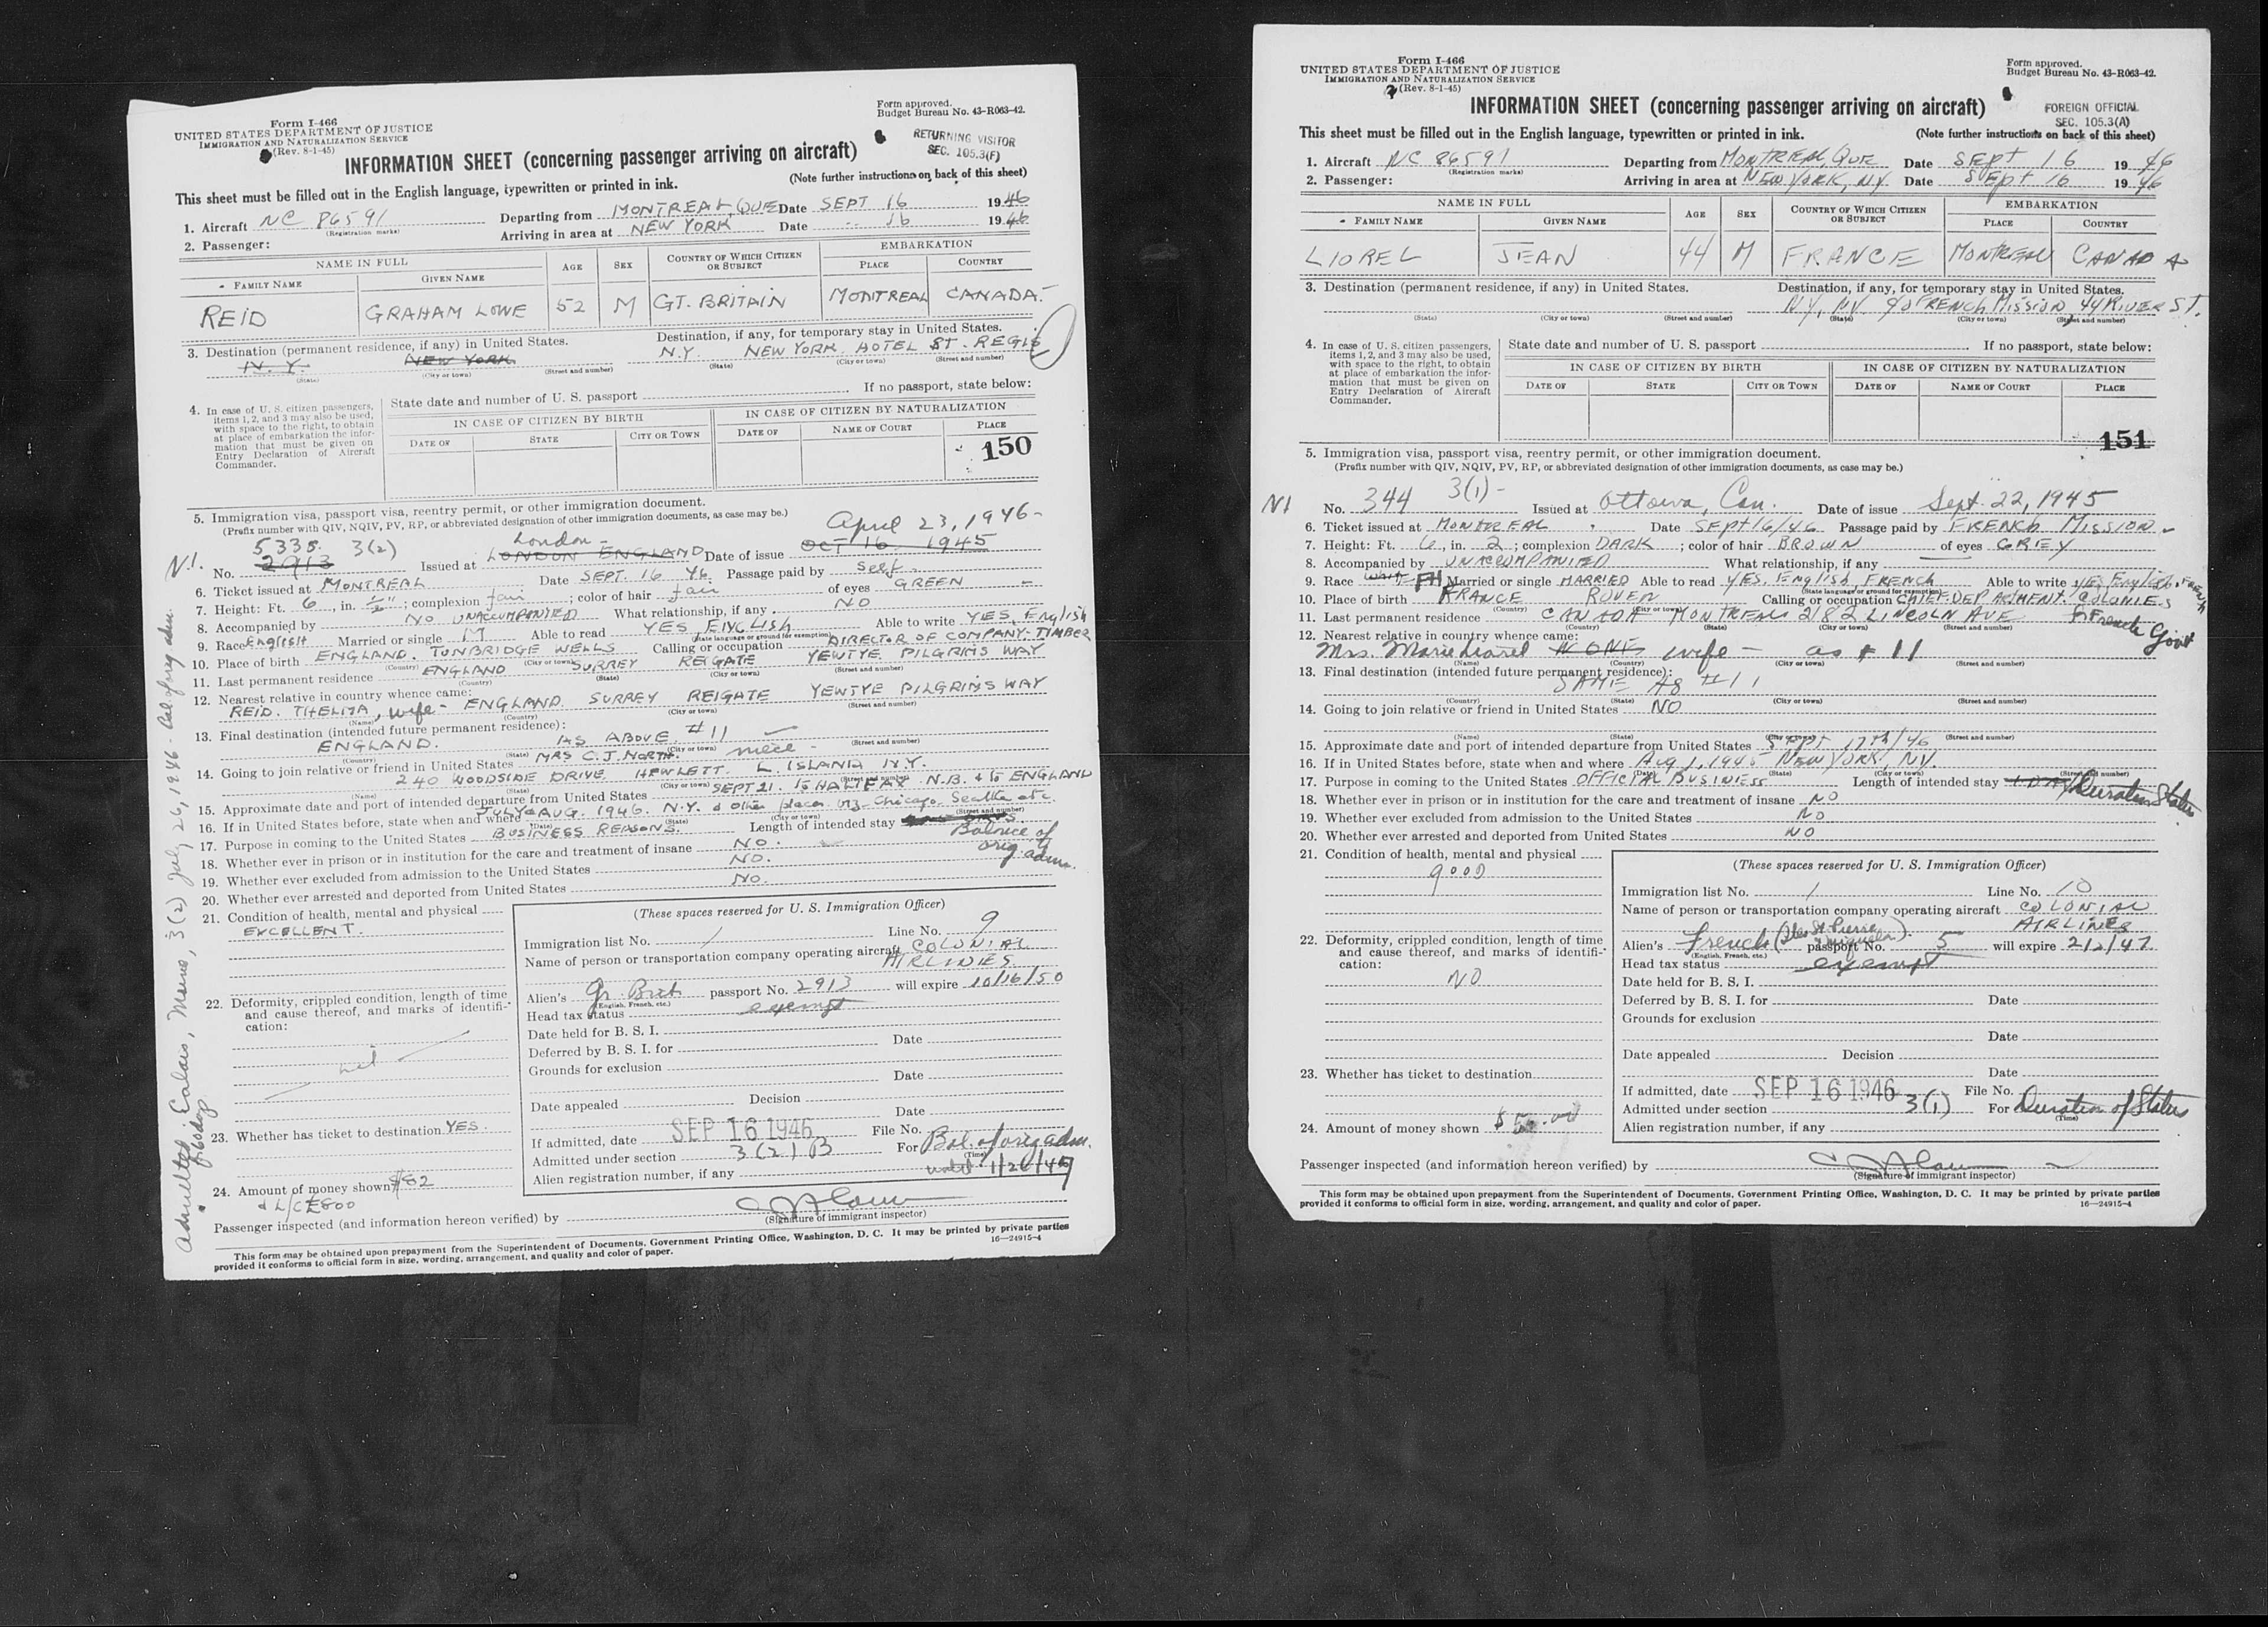 Form I-466
UNITED STATES DEPARTMENT OF JUSTICE
IMMIGRATION AND NATURALIZATION SERVICE
(Rev. 8-1-45)
Form approved.
Budget Bureau No. 43-R063-42.
RETURNING VISITOR
SEC. 105.3(F)
INFORMATION SHEET (concerning passenger arriving on aircraft)
This sheet must be filled out in the English language, typewritten or printed in ink. (Note further instructions on back of this sheet)
1. Aircraft NC 86591 (Registration marks) Departing from MONTREAL, QUE Date SEPT 16 1946
2. Passenger: Arriving in area at NEW YORK Date 16 1946
NAME IN FULL AGE SEX COUNTRY OF WHICH CITIZEN OR SUBJECT EMBARKATION
FAMILY NAME GIVEN NAME PLACE COUNTRY
REID GRAHAM LOWE 52 M GT. BRITAIN MONTREAL CANADA
3. Destination (permanent residence, if any) in United States. Destination, if any, for temporary stay in United States.
N.Y. NEW YORK N.Y. NEW YORK HOTEL ST. REGIS
(State) (City or town) (Street and number) (State) (City or town) (Street and number)
4. In case of U. S. citizen passengers, items 1, 2, and 3 may also be used, with space to the right, to obtain at place of embarkation the information that must be given on Entry Declaration of Aircraft Commander.
State date and number of U. S. passport If no passport, state below:
IN CASE OF CITIZEN BY BIRTH IN CASE OF CITIZEN BY NATURALIZATION
DATE OF STATE CITY OR TOWN DATE OF NAME OF COURT PLACE
150
5. Immigration visa, passport visa, reentry permit, or other immigration document.
(Prefix number with QIV, NQIV, PV, RP, or abbreviated designation of other immigration documents, as case may be.)
5335 3(2) London - April 23, 1946 -
No. 2913 Issued at LONDON ENGLAND Date of issue OCT 16 1945
6. Ticket issued at MONTREAL Date SEPT. 16 46 Passage paid by Self
7. Height: Ft. 6, in. ½"; complexion fair; color of hair fair of eyes GREEN
8. Accompanied by NO UNACCOMPANIED What relationship, if any NO
9. Race English Married or single M Able to read YES ENGLISH Able to write YES, English
(State language or ground for exemption)
10. Place of birth ENGLAND. TUNBRIDGE WELLS Calling or occupation DIRECTOR OF COMPANY - TIMBER
(Country) (City or town)
11. Last permanent residence ENGLAND SURREY REIGATE YEWTYE PILGRIMS WAY
(Country) (State) (City or town) (Street and number)
12. Nearest relative in country whence came:
REID. THELMA, wife - ENGLAND. SURREY REIGATE YEWTYE PILGRIMS WAY
(Name) (Country) (City or town) (Street and number)
13. Final destination (intended future permanent residence):
ENGLAND. AS ABOVE #11
(Country) (State) (City or town) (Street and number)
14. Going to join relative or friend in United States MRS C.J. NORTH. niece -
240 WOODSIDE DRIVE HEWLETT. L. ISLAND N.Y.
(Name) (State) (City or town) (Street and number)
15. Approximate date and port of intended departure from United States SEPT 21. to HALIFAX N.B. & to ENGLAND
16. If in United States before, state when and where JULY & AUG. 1946. N.Y. & other places viz - Chicago Seattle etc
(Date) (State) (City or town) (Street and number)
17. Purpose in coming to the United States BUSINESS REASONS. Length of intended stay Balance of orig. adm.
18. Whether ever in prison or in institution for the care and treatment of insane NO.
19. Whether ever excluded from admission to the United States NO.
20. Whether ever arrested and deported from United States NO.
21. Condition of health, mental and physical
EXCELLENT.
22. Deformity, crippled condition, length of time and cause thereof, and marks of identification:
nil
23. Whether has ticket to destination YES.
24. Amount of money shown $82
& L/C £800
(These spaces reserved for U. S. Immigration Officer)
Immigration list No. 1 Line No. 9
Name of person or transportation company operating aircraft COLONIAL AIRLINES
Alien's Gr. Brit passport No. 2913 will expire 10/16/50
(English, French, etc.)
Head tax status exempt
Date held for B. S. I.
Deferred by B. S. I. for Date
Grounds for exclusion
Date
Date appealed Decision
Date
If admitted, date SEP 16 1946 File No.
Admitted under section 3(2) B For Bal. of orig adm. (Time)
Alien registration number, if any until 1/26/47
Passenger inspected (and information hereon verified) by
(Signature of immigrant inspector)
This form may be obtained upon prepayment from the Superintendent of Documents, Government Printing Office, Washington, D. C. It may be printed by private parties
provided it conforms to official form in size, wording, arrangement, and quality and color of paper. 16—24915-4
Admitted Calais, Maine, 3(2) July 26, 1946 - Bal. of orig adm.
Form I-466
UNITED STATES DEPARTMENT OF JUSTICE
IMMIGRATION AND NATURALIZATION SERVICE
(Rev. 8-1-45)
Form approved.
Budget Bureau No. 43-R063-42.
FOREIGN OFFICIAL
SEC. 105.3(A)
INFORMATION SHEET (concerning passenger arriving on aircraft)
This sheet must be filled out in the English language, typewritten or printed in ink. (Note further instructions on back of this sheet)
1. Aircraft NC 86591 (Registration marks) Departing from MONTREAL QUE Date SEPT 16 1946
2. Passenger: Arriving in area at NEW YORK, NY. Date SEPT 16 1946
NAME IN FULL AGE SEX COUNTRY OF WHICH CITIZEN OR SUBJECT EMBARKATION
FAMILY NAME GIVEN NAME PLACE COUNTRY
LIOREL JEAN 44 M FRANCE MONTREAL CANADA
3. Destination (permanent residence, if any) in United States. Destination, if any, for temporary stay in United States.
NY, NY. c/o FRENCH Mission, 44 RIVER ST.
(State) (City or town) (Street and number) (State) (City or town) (Street and number)
4. In case of U. S. citizen passengers, items 1, 2, and 3 may also be used, with space to the right, to obtain at place of embarkation the information that must be given on Entry Declaration of Aircraft Commander.
State date and number of U. S. passport If no passport, state below:
IN CASE OF CITIZEN BY BIRTH IN CASE OF CITIZEN BY NATURALIZATION
DATE OF STATE CITY OR TOWN DATE OF NAME OF COURT PLACE
151
5. Immigration visa, passport visa, reentry permit, or other immigration document.
(Prefix number with QIV, NQIV, PV, RP, or abbreviated designation of other immigration documents, as case may be.)
No. 344 3(1) - Issued at Ottawa, Can. Date of issue Sept. 22, 1945
6. Ticket issued at MONTREAL Date SEPT 16/46 Passage paid by FRENCH MISSION
7. Height: Ft. 6, in. 2; complexion DARK; color of hair BROWN of eyes GREY
8. Accompanied by UNACCOMPANIED What relationship, if any
9. Race WHITE FH Married or single MARRIED Able to read YES. English, FRENCH Able to write YES English, FRENCH
(State language or ground for exemption)
10. Place of birth FRANCE ROUEN Calling or occupation CHIEF DEPARTMENT. COLONIES
(Country) (City or town) French Govt
11. Last permanent residence CANADA MONTREAL 2182 LINCOLN AVE
(Country) (State) (City or town) (Street and number)
12. Nearest relative in country whence came:
Mrs. Marie Liorel NONE wife - as # 11
(Name) (Country) (City or town) (Street and number)
13. Final destination (intended future permanent residence):
SAME AS #11
(Country) (State) (City or town) (Street and number)
14. Going to join relative or friend in United States NO
(Name) (State) (City or town) (Street and number)
15. Approximate date and port of intended departure from United States Sept 17th/46
16. If in United States before, state when and where Aug 1, 1945 NEW YORK, NY.
(Date) (State) (City or town) (Street and number)
17. Purpose in coming to the United States OFFICIAL BUSINESS Length of intended stay 1 DAY Duration Status
18. Whether ever in prison or in institution for the care and treatment of insane NO
19. Whether ever excluded from admission to the United States NO
20. Whether ever arrested and deported from United States NO
21. Condition of health, mental and physical
good
22. Deformity, crippled condition, length of time and cause thereof, and marks of identification:
NO
23. Whether has ticket to destination
24. Amount of money shown $50.00
(These spaces reserved for U. S. Immigration Officer)
Immigration list No. 1 Line No. 10
Name of person or transportation company operating aircraft COLONIAL AIRLINES
Alien's French (Iles St. Pierre Miquelon) passport No. 5 will expire 2/2/47
(English, French, etc.)
Head tax status exempt
Date held for B. S. I.
Deferred by B. S. I. for Date
Grounds for exclusion
Date
Date appealed Decision
Date
If admitted, date SEP 16 1946 File No.
Admitted under section 3(1) For Duration of Status (Time)
Alien registration number, if any
Passenger inspected (and information hereon verified) by
(Signature of immigrant inspector)
This form may be obtained upon prepayment from the Superintendent of Documents, Government Printing Office, Washington, D. C. It may be printed by private parties
provided it conforms to official form in size, wording, arrangement, and quality and color of paper. 16—24915-4